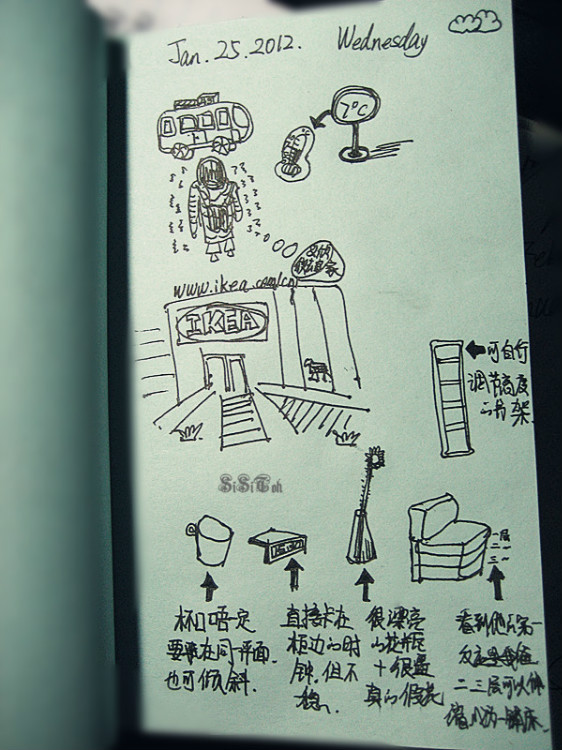 Jan. 25. 2012. Wednesday
7°C
www.ikea.com/cn
IKEA
可自行
调节高度
的书架
SiSiToh
一层
二
三
杯口唔一定
要来在同一平面.
也可倾斜.
直接卡在
柜边的时
钟,但不
稳、
很漂亮
的花并尼
十很逼
真的假花
看到他后第一
二三层可以伸
缩成为一铺床.